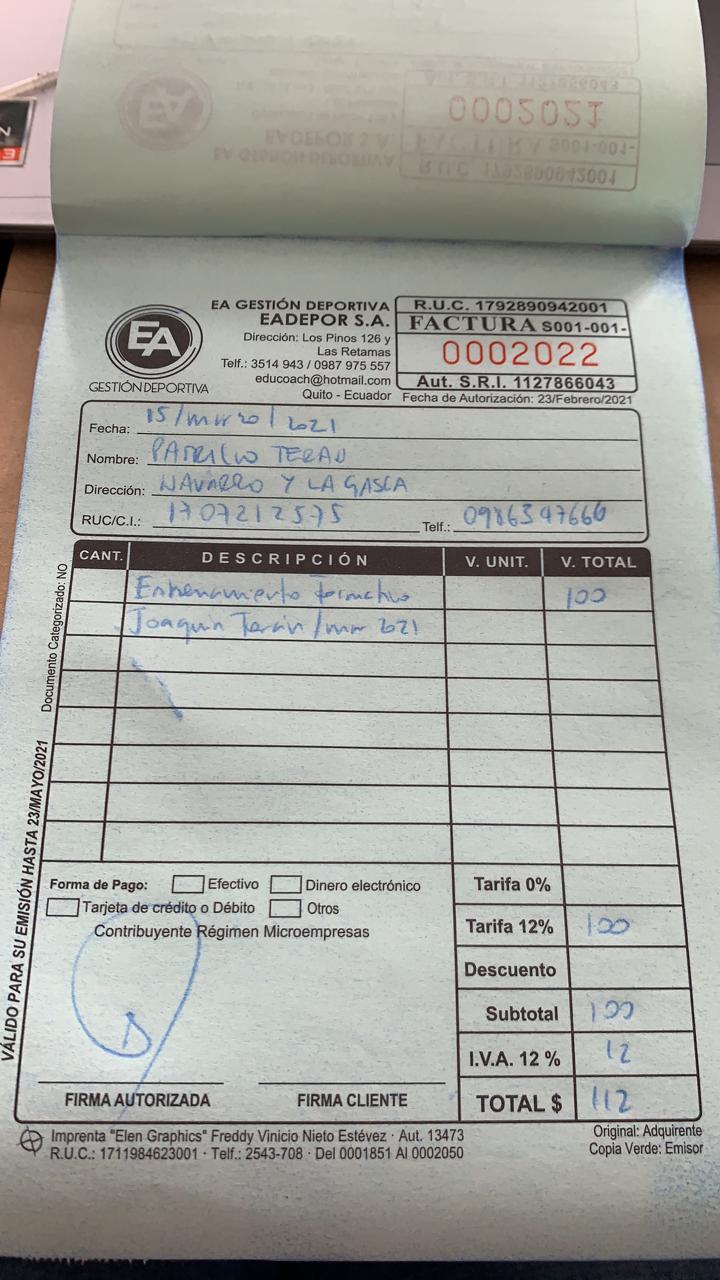 0002021
R.U.C. 1792890942001
EA
GESTIÓN DEPORTIVA
EA GESTIÓN DEPORTIVA
EADEPOR S.A.
Dirección: Los Pinos 126 y
Las Retamas
Telf.: 3514 943 / 0987 975 557
educoach@hotmail.com
Quito - Ecuador
R.U.C. 1792890942001
FACTURA S001-001-
0002022
Aut. S.R.I. 1127866043
Fecha de Autorización: 23/Febrero/2021
Fecha: 15/marzo/2021
Nombre: PATRICIO TERAN
Dirección: NAVARRO Y LA GASCA
RUC/C.I.: 1707212575 Telf.: 0986347666
CANT. DESCRIPCIÓN V. UNIT. V. TOTAL
Entrenamiento formativo 100
Joaquín Terán/mar 2021
Documento Categorizado: NO
VÁLIDO PARA SU EMISIÓN HASTA 23/MAYO/2021
Forma de Pago: Efectivo Dinero electrónico
Tarjeta de crédito o Débito Otros
Contribuyente Régimen Microempresas
FIRMA AUTORIZADA FIRMA CLIENTE
Tarifa 0%
Tarifa 12% 100
Descuento
Subtotal 100
I.V.A. 12 % 12
TOTAL $ 112
Imprenta "Elen Graphics" Freddy Vinicio Nieto Estévez · Aut. 13473
R.U.C.: 1711984623001 · Telf.: 2543-708 · Del 0001851 Al 0002050
Original: Adquirente
Copia Verde: Emisor